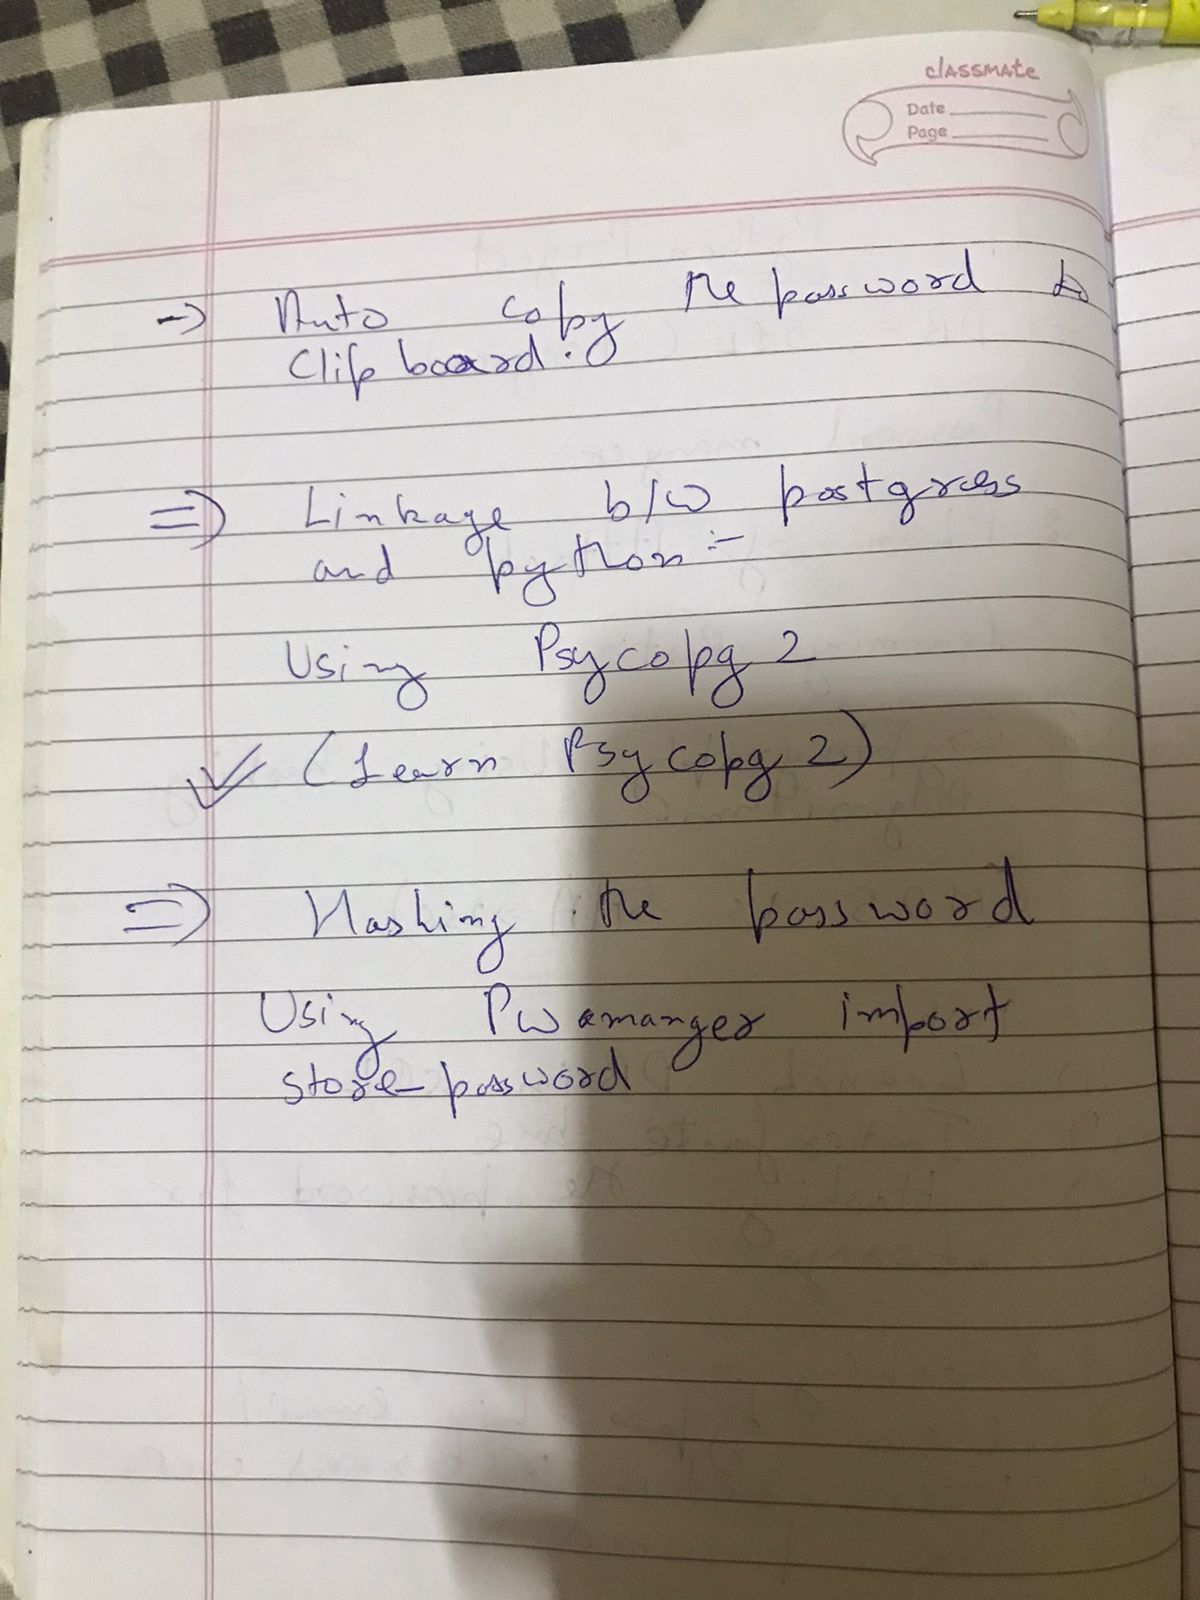 classmate
Date
Page
→ Auto copy the password to
Clipboard.
⇒ Linkage b/w postgress
and python :-
Using Psycopg 2
✓ (Learn Psycopg 2)
⇒ Hashing the password
Using Pwamanger import
store_password